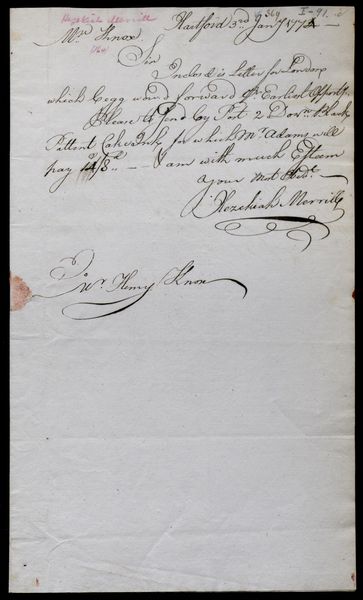 Hezekiah Merrill
369
I-91.
Hartford 3rd Jany 177
Mr. Knox
Sir
Inclosd is Letter for London
which I egg would forward Earliest Opporty.
Please to Send by Post 2 Dozn. Black
Pattent for which Mr Adams will
pay I am with much Esteem
Your Most Obdt.
Hezekiah Merrill
Mr. Henry Knox